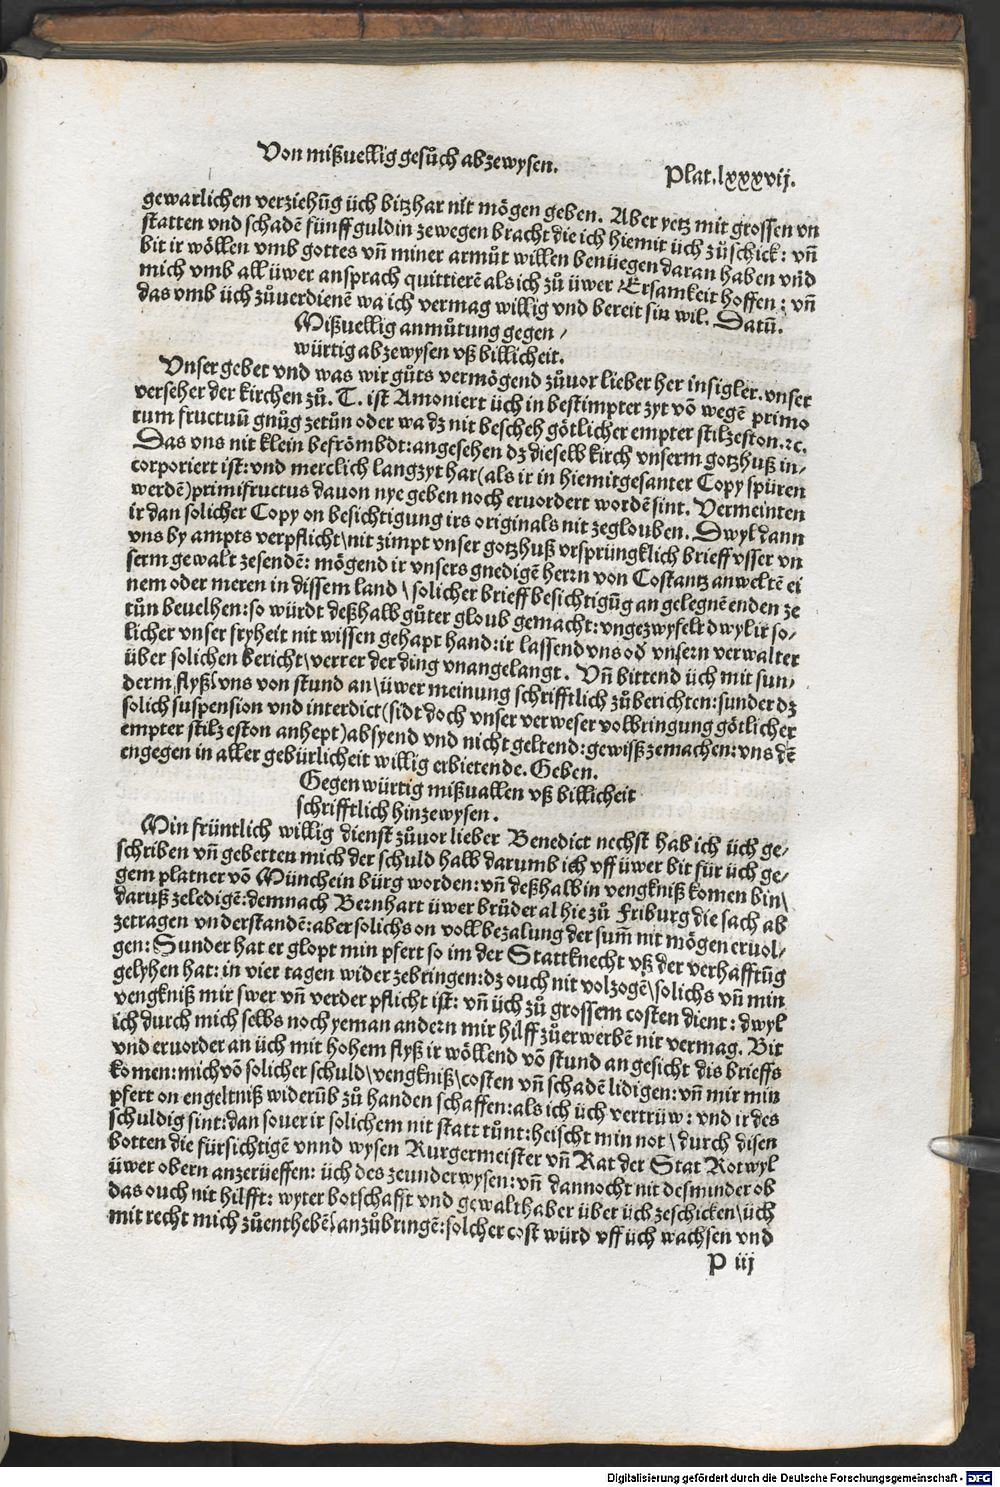 Von mißuellig gesůch abzewysen.
Plat.lxxxvij.
gewarlichen verziehũg üch bitzhar nit mögen geben. Aber yetz mit grossen vn
statten vnd schadẽ fünff guldin zewegen bracht die ich hiemit üch zůschick: vñ
bit ir wöllen vmb gottes vñ miner armůt willen benüegen daran haben vñd
mich vmb all üwer ansprach quittierẽ als ich zů üwer Ersamkeit hoffen: vñ
das vmb üch zůuerdienẽ wa ich vermag willig vnd bereit sin wil. Datũ.
Mißuellig anmůtung gegen/
würtig abzewysen vß billicheit.
Vnser gebet vnd was wir gůts vermögend zůuor lieber her insigler. vnser
verseher der kirchen zů. T. ist Amoniert üch in bestimpter zyt võ wegẽ primo
rum fructuũ gnůg zetůn oder wa dz nit bescheh götlicher empter stilzeston.⁊c.
Das vns nit klein befrömbdt: angesehen dz dieselb kirch vnserm gotzhuß in/
corporiert ist: vnd merclich langzyt har (als ir in hiemitgesanter Copy spüren
werdẽ) primifructus dauon nye geben noch eruordert wordẽ sint. Vermeinten
ir dan solicher Copy on besichtigung irs originals nit zeglouben. Dwyl dann
vns by ampts verpflicht\ nit zimpt vnser gotzhuß vrsprüngklich brieff vsser vn
serm gewalt zesendẽ: mögend ir vnsers gnedigẽ herrn von Costantz anweltẽ ei
nem oder meren in dissem land \ solicher brieff besichtigũg an gelegnẽ enden ze
tůn beuelhen: so würdt deßhalb gůter gloub gemacht: vngezwyfelt dwyl ir so/
licher vnser fryheit nit wissen gehapt hand: ir lassend vns od̕ vnsern verwalter
über solichen bericht\ verrer der ding vnangelangt. Vñ bittend üch mit sun/
derm flyß\ vns von stund an\ üwer meinung schrifftlich zůberichten: sunder dz
solich suspension vnd interdict (sidt doch vnser verweser volbringung götlicher
empter stilzeston anhept) absyend vnd nicht geltend: gewiß zemachen: vns dẽ
engegen in aller gebürlicheit willig erbietende. Geben.
Gegenwürtig mißuallen vß billicheit
schrifftlich hinzewysen.
Min früntlich willig dienst zůuor lieber Benedict nechst hab ich üch ge/
schriben vñ gebetten mich der schuld halb darumb ich vff üwer bit für üch ge/
gem platner võ Münchein bürg worden: vñ deßhalb in vengkniß komen bin\
daruß zeledigẽ: demnach Bernhart üwer brůder al hie zů Friburg die sach ab
zetragen vnderstandẽ: aber solichs on voll bezalung der sum̃ nit mögen eruol/
gen: Sunder hat er glopt min pfert so im der Stattknecht vß der verhafftũg
gelyhen hat: in vier tagen wider zebringen: dz ouch nit volzogẽ\ solichs vñ min
vengkniß mir swer vñ verder pflicht ist: vñ üch zů grossem costen dient: dwyl
ich durch mich selbs noch yeman andern mir hilff zůerwerbẽ nit vermag. Bit
vnd eruorder an üch mit hohem flyß ir wöllend võ stund an gesicht dis brieffs
komen: mich võ solicher schuld\ vengkniß\ costen vñ schadẽ lidigen: vñ mir min
pfert on engeltniß widerũb zů handen schaffen: als ich üch vertrüw: vnd ir des
schuldig sint: dan souer ir solichem nit statt tůnt: heischt min not \ durch disen
botten die fürsichtigẽ vnnd wysen Burgermeister vñ Rat der Stat Rotwyl
üwer obern anzerüeffen: üch des zeunderwysen: vñ dannocht nit desminder ob
das ouch nit hilfft: wyter botschafft vnd gewalthaber über üch zeschicken\ üch
mit recht mich zůenthebẽ\ anzůbringẽ: solcher cost würd vff üch wachsen vnd
P iij
Digitalisierung gefördert durch die Deutsche Forschungsgemeinschaft - DFG